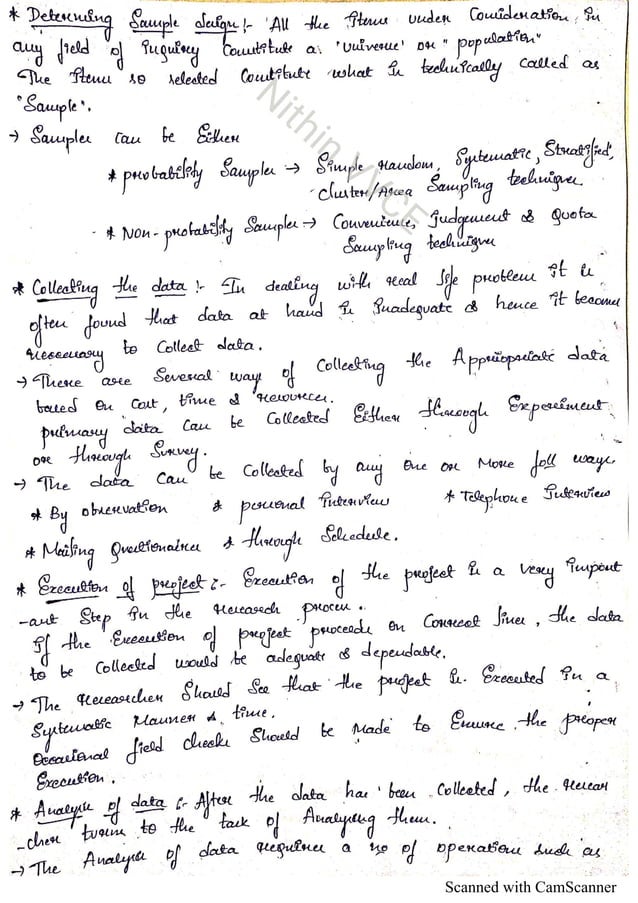 * Determining Sample design :- 'All the Items under Consideration, in
any field of Inquiry Constitute a 'universe' or "population"
The Items so selected Constitute what is technically called as
"Sample".
→ Samples Can be Either
* probability Samples → Simple random, Systematic, Stratified,
cluster/Area Sampling techniques.
* Non-probability Samples → Convenience, Judgement & Quota
Sampling techniques
* Collecting the data :- In dealing with real life problem it is
often found that data at hand is Inadequate & hence it becomes
necessary to Collect data.
→ There are Several ways of Collecting the Appropriate data
based on Cost, time & resources.
primary data Can be Collected Either through Experiment
or through Survey.
→ The data Can be Collected by any One or More foll ways.
* By observation * personal Interview * Telephone Interview
* Mailing Questionaires * through Schedule.
* Execution of project :- Execution of the project is a very Import
-ant Step in the research process.
If the Execution of project proceeds on Correct lines, the data
to be Collected would be adequate & dependable.
→ The researcher Should See that the project is Executed in a
Systematic Manner & time.
Occasional field checks Should be Made to Ensure the proper
Execution.
* Analysis of data :- After the data has been Collected, the resear
-cher turns to the task of Analysing them.
→ The Analysis of data requires a no of operations such as
Nithin VVCE
Scanned with CamScanner